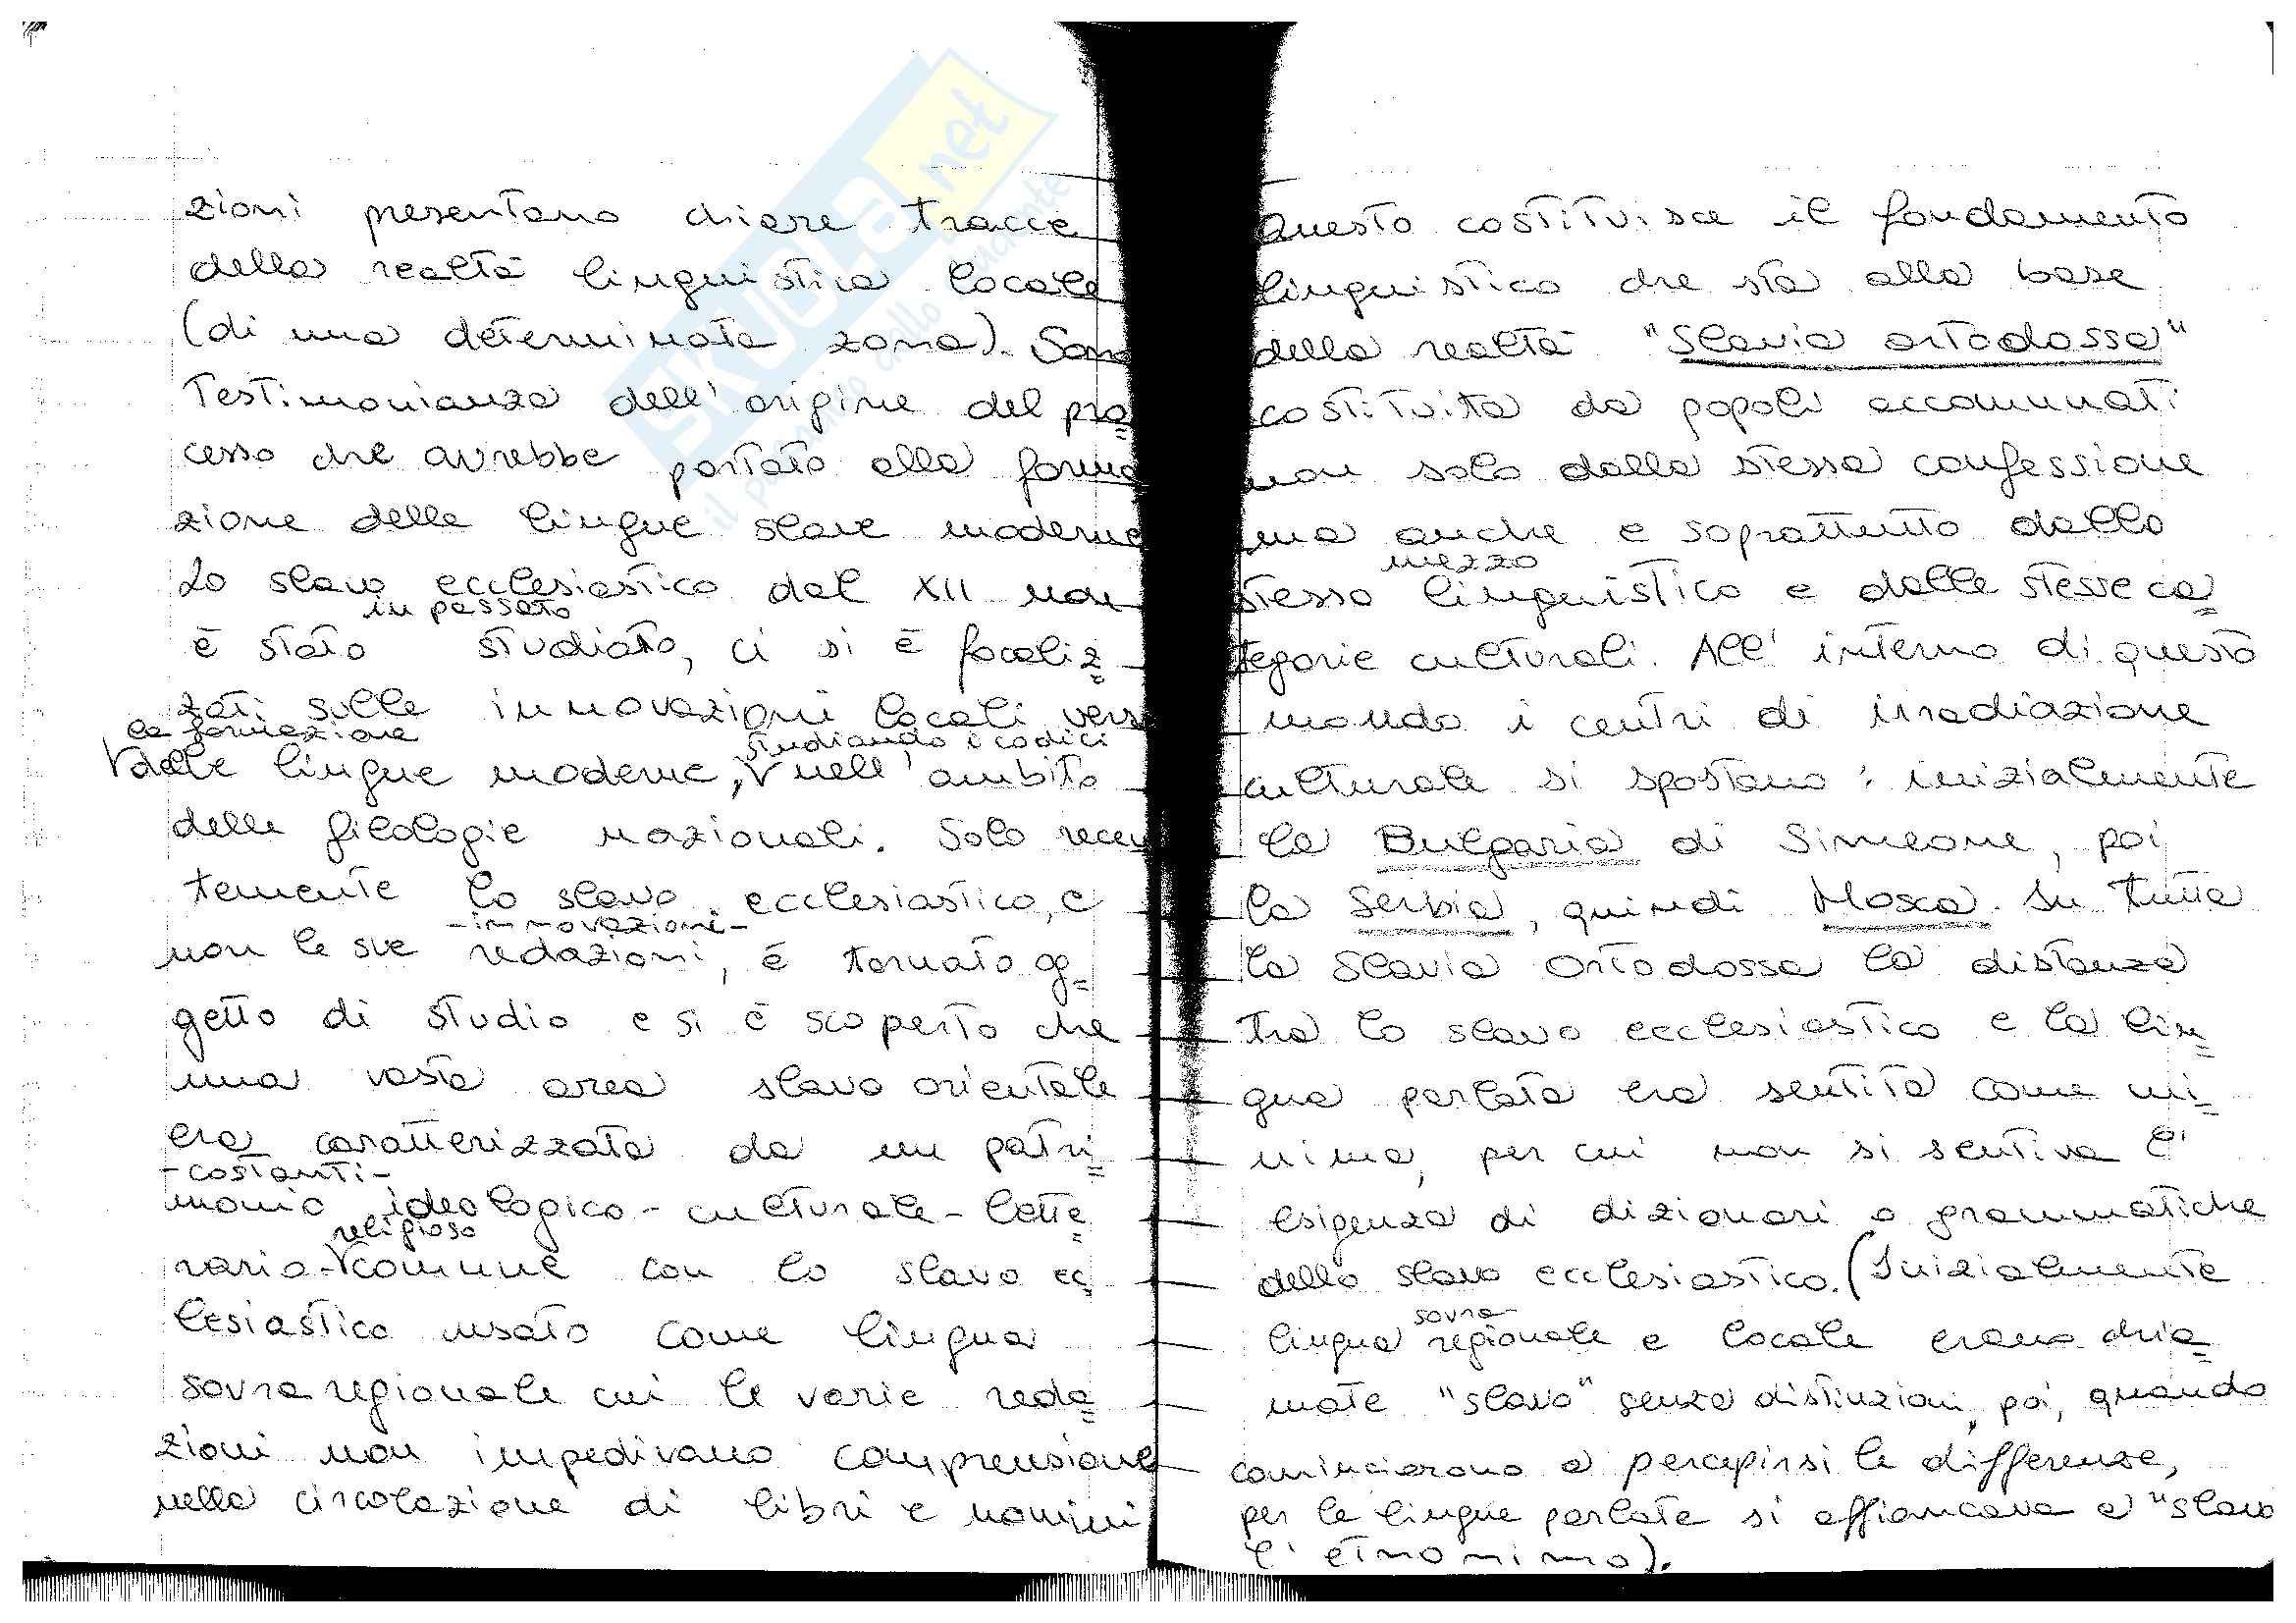 zioni presentano chiare tracce
della realtà linguistica locale
(di una determinata zona). Sono
testimonianza dell'origine del pro=
cesso che avrebbe portato alla forma
zione delle lingue slave moderne
Lo slavo ecclesiastico dal XII non
in passato
è stato studiato, ci si è focaliz=
zati sulle innovazioni locali verso
la formazione
studiando i codici
V delle lingue moderne, V nell'ambito
delle filologie nazionali. Solo recen
temente lo slavo ecclesiastico, e
-innovazioni-
non le sue redazioni, è tornato og=
getto di studio e si è scoperto che
una vasta area slavo orientale
era caratterizzata da un patri=
-costanti-
monio ideologico-culturale-lette=
religioso
rario-V comune con lo slavo ec=
lesiastico usato come lingua
sovraregionale cui le varie reda=
zioni non impedivano comprensione
nella circolazione di libri e uomini
Questo costituisce il fondamento
linguistico che sta alla base
della realtà "Slavia ortodossa"
costituita da popoli accomunati
non solo dalla stessa confessione
ma anche e soprattutto dallo
mezzo
stesso linguistico e dalle stesse ca=
tegorie culturali. All'interno di questo
mondo i centri di irradiazione
culturale si spostano: inizialmente
la Bulgaria di Simeone, poi
la Serbia, quindi Mosca. In tutta
la Slavia Ortodossa la distanza
tra lo slavo ecclesiastico e la lin=
gua parlata era sentita come mi=
nima, per cui non si sentiva l'
esigenza di dizionari o grammatiche
dello slavo ecclesiastico. (Inizialmente
sovra-
lingua regionale e locale erano chia=
mate "slavo" senza distinzioni, poi, quando
cominciarono a percepirsi le differenze,
per le lingue parlate si affiancava a "slavo
l'etnonimo).
SKUOLA.net
il paradiso dello studente